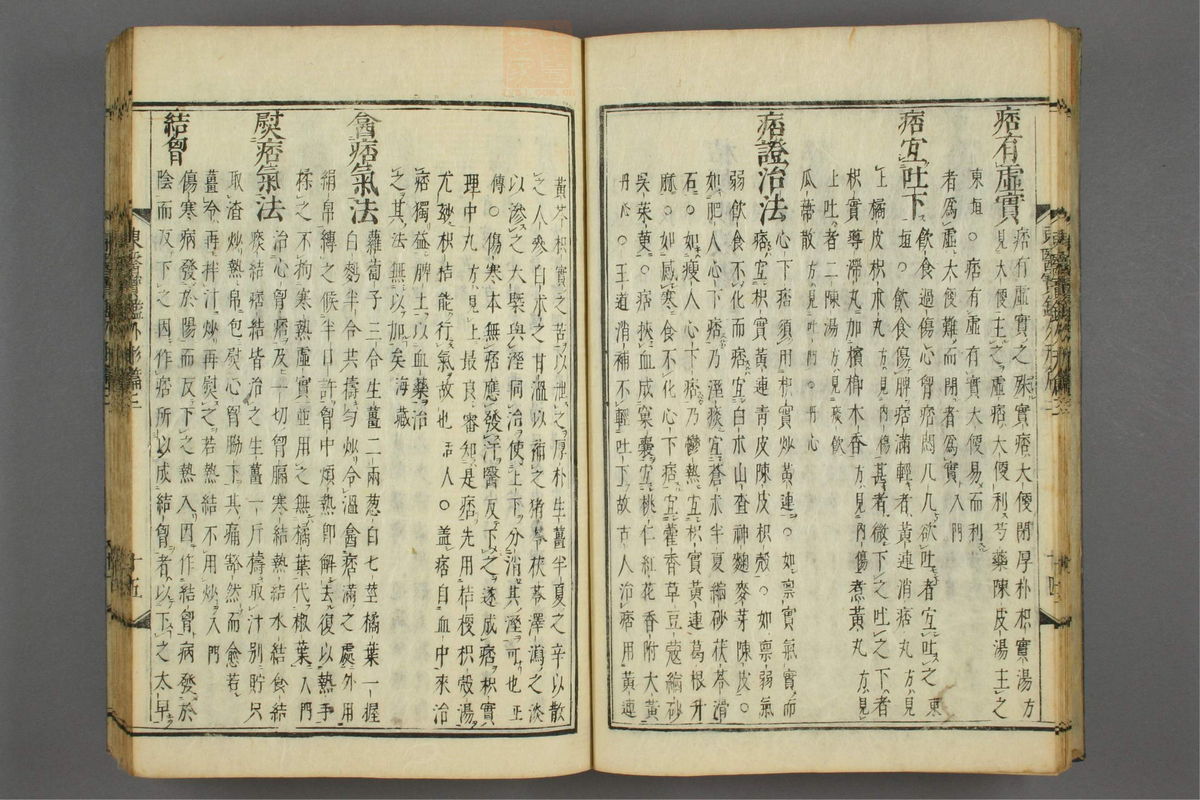 痞有虛實 痞有虛實之殊實痞大便閉厚朴枳實湯方
見大便主之虛痞大便利芍藥陳皮湯主之
東垣○痞有虛實大便易而利
者爲虛大便難而閉者爲實入門
痞宜吐下 飮食過傷心胷痞悶兀兀欲吐者宜吐之東
垣○飮食傷脾痞滿輕者黃連消痞丸方見
上橘皮枳朮丸方見內傷甚者微下之吐之下者
枳實導滯丸加檳榔木香方見內傷煮黃丸方見
上吐者二陳湯方見痰飮
瓜蔕散方見吐門丹心
痞證治法 心下痞須用枳實炒黃連○如禀實氣實而
痞宜枳實黃連靑皮陳皮枳殼○如禀弱氣
弱飮食不化而痞宜白朮山査神麴麥芽陳皮○
如肥人心下痞乃溼痰宜蒼朮半夏縮砂茯苓滑
石○如瘦人心下痞乃鬱熱宜枳實黃連葛根升
麻○如感寒食不化心下痞宜藿香草豆蔻縮砂
吳茱萸○痞挾血成窠囊宜桃仁紅花香附大黃
丹心○王道消補不輕吐下故古人治痞用黃連
黃芩枳實之苦以泄之厚朴生薑半夏之辛以散
之人參白朮之甘溫以補之猪苓茯苓澤瀉之淡
以滲之大槩與溼同治使上下分消其溼可也正
傳○傷寒本無痞應發汗醫反下之遂成痞枳實
理中丸方見上最良審知是痞先用桔梗枳殼湯
尤玅枳桔能行氣故也活人○盖痞自血中來治
痞獨益脾土以血藥治
之其法無以加矣海藏
盦痞氣法 蘿蔔子三合生薑二兩葱白七莖橘葉一握
白麪半合共擣勻炒令溫盦痞滿之處外用
絹帛縛之候半日許胷中煩熱卽解去復以熱手
揉之不拘寒熱虛實並用之無橘葉代椒葉入門
熨痞氣法 治心胷痞及一切胷膈寒結熱結水結食結
痰結痞結皆治之生薑一斤擣取汁別貯只
取渣炒熱帛包熨心胷脇下其痛豁然而愈若
薑冷再拌汁炒再熨之若熱結不用炒入門
結胷 傷寒病發於陽而反下之熱入因作結胷病發於
陰而反下之因作痞所以成結胷者以下之太早
東醫寶鑑外形篇三
十五